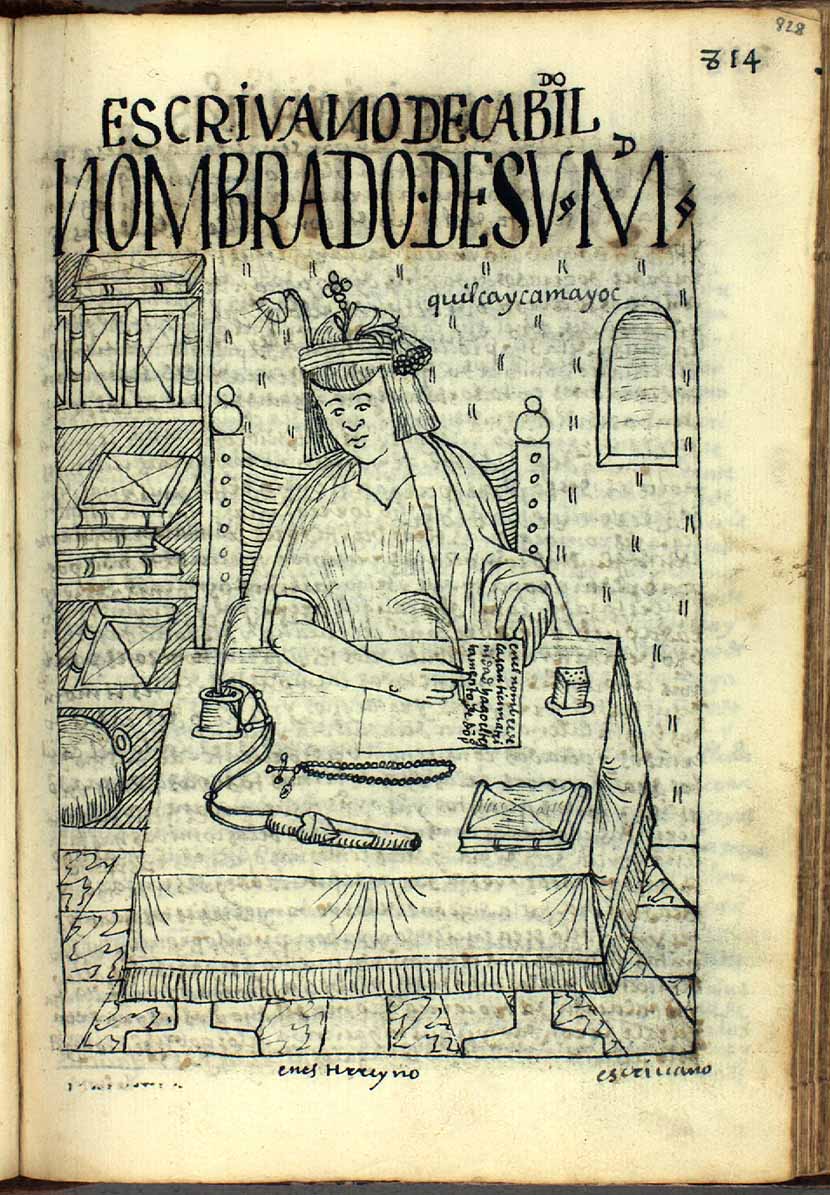 828
814
ESCRIVANO DE CABILDO
NOMBRADO·DE SV·MD·
quilcaycamayoc
en el nombre de
la santicima tri
nidad hago el tes
tamento de don
en este rreyno
escriuano